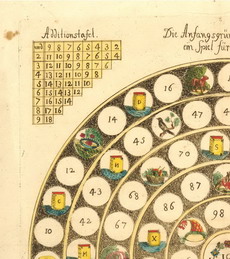 Additionstafel.
Die Anfangsgrün
ein Spiel für
9 8 7 6 5 4 3 2
2 11 10 9 8 7 6 5 4
3 12 11 10 9 8 7 6
4 13 12 11 10 9 8
5 14 13 12 11 10
6 15 14 13 12
7 16 15 14
8 17 16
9 18
D
16
47
14
45
70
S
H
12
43
68
87
10
42
67
X
86
98
M